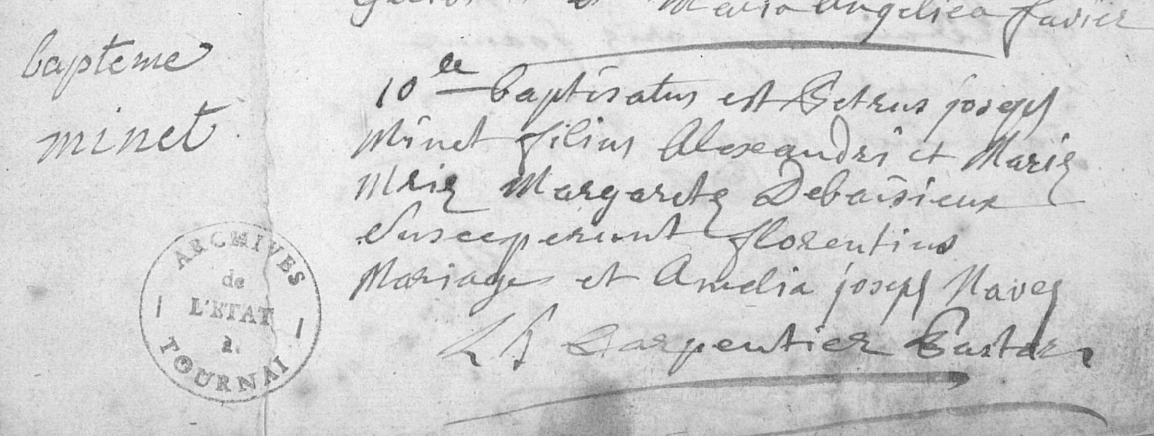 et Maria Angelica favier
bapteme
minet
10 le baptisatus est Petrus joseph
Minet filius Alexandri et Mariæ
Mriæ Margaretæ Debaisieux
Susceperunt florentius
Mariage et Amelia joseph Navez
Carpentier Pastor
ARCHIVES
de
L'ETAT
à
TOURNAI